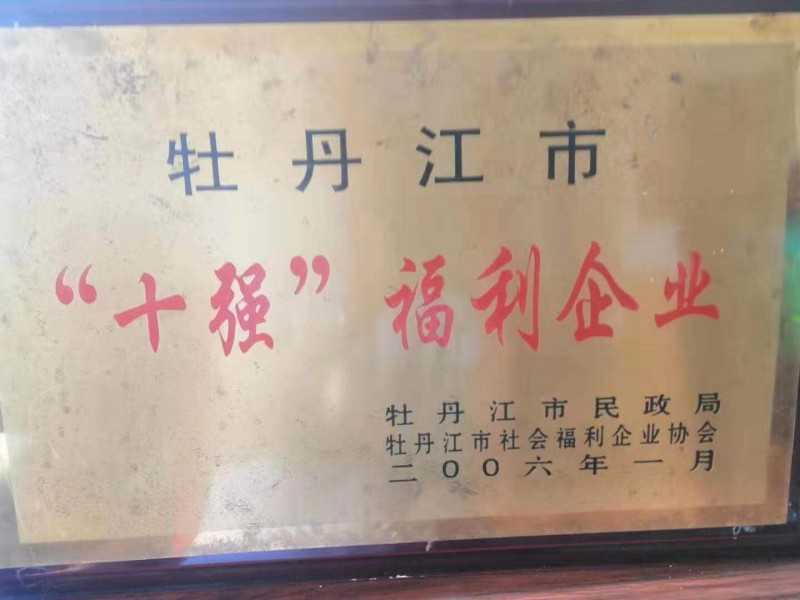 牡丹江市
“十强”福利企业
牡丹江市民政局
牡丹江市社会福利企业协会
二OO六年一月